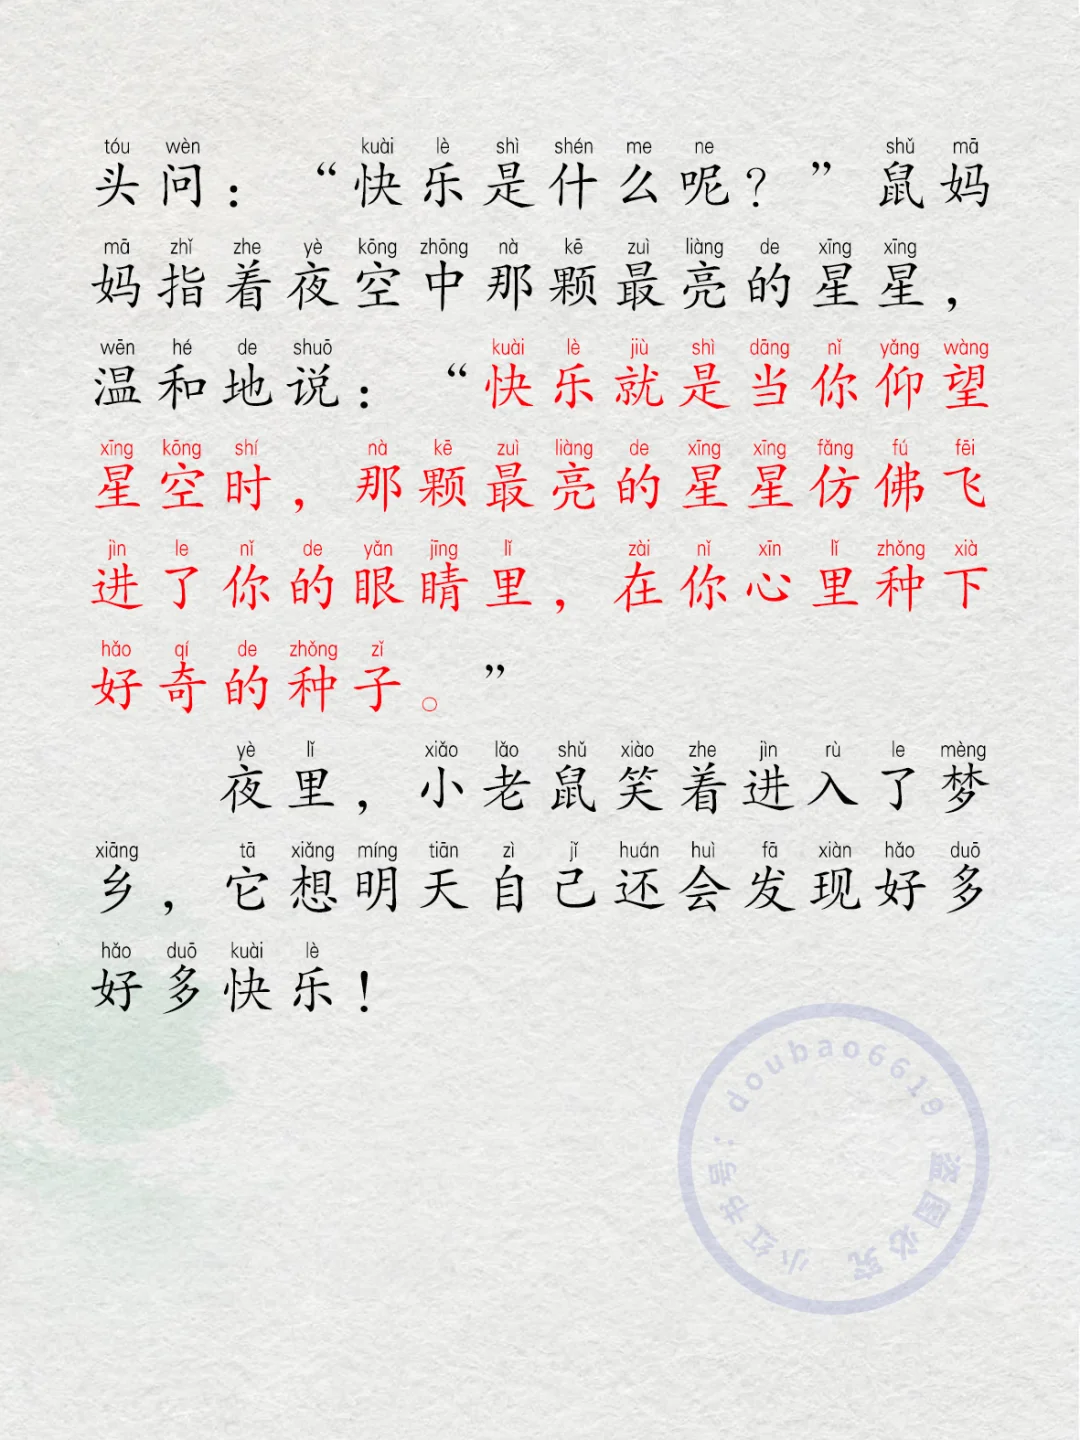 tóu wèn kuài lè shì shén me ne shǔ mā
头问：“快乐是什么呢？”鼠妈
mā zhǐ zhe yè kōng zhōng nà kē zuì liàng de xīng xīng
妈指着夜空中那颗最亮的星星，
wēn hé de shuō kuài lè jiù shì dāng nǐ yǎng wàng
温和地说：“快乐就是当你仰望
xīng kōng shí nà kē zuì liàng de xīng xīng fǎng fú fēi
星空时，那颗最亮的星星仿佛飞
jìn le nǐ de yǎn jīng lǐ zài nǐ xīn lǐ zhǒng xià
进了你的眼睛里，在你心里种下
hǎo qí de zhǒng zǐ
好奇的种子。”
yè lǐ xiǎo lǎo shǔ xiào zhe jìn rù le mèng
夜里，小老鼠笑着进入了梦
xiāng tā xiǎng míng tiān zì jǐ huán huì fā xiàn hǎo duō
乡，它想明天自己还会发现好多
hǎo duō kuài lè
好多快乐！
小红书号：doubao6619
盗图必究